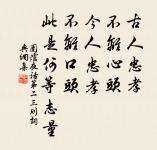 古人忠孝
不離心頭
今人忠孝
不離口頭
此是何等志量
圍爐夜話第二三則詞
典網集